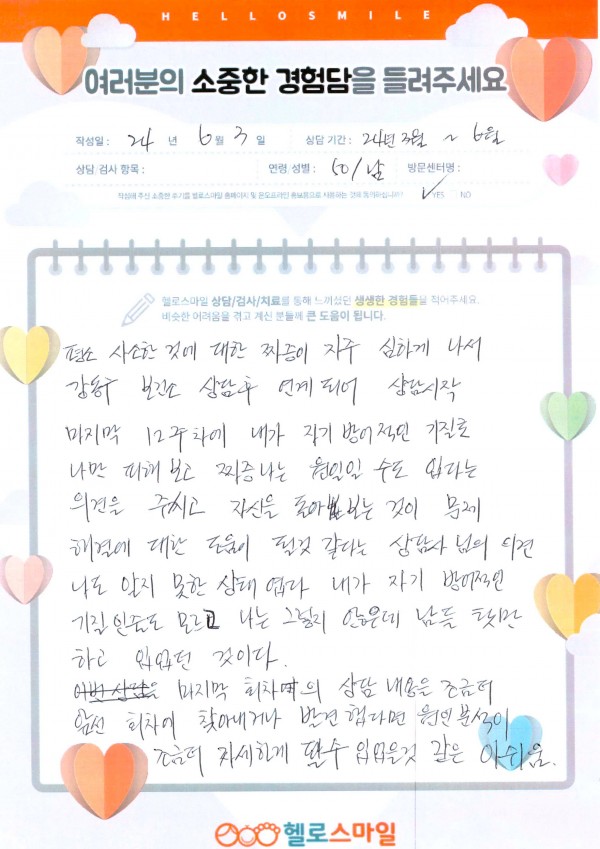 HELLOSMILE
여러분의 소중한 경험담을 들려주세요
작성일 : 24 년 6 월 3 일 상담 기간 : 24년 3월 ~ 6월
상담/검사 항목 : 연령/성별 : 50/남 방문센터명 :
작성해 주신 소중한 후기를 헬로스마일 홈페이지 및 온오프라인 홍보용으로 사용하는 것에 동의하십니까? ✓ YES NO
헬로스마일 상담/검사/치료를 통해 느끼셨던 생생한 경험들을 적어주세요.
비슷한 어려움을 겪고 계신 분들께 큰 도움이 됩니다.
평소 사소한 것에 대한 짜증이 자주 심하게 나서
강동구 보건소 상담후 연계되어 상담시작
마지막 12주차에 내가 자기 방어적인 기질로
나만 피해보고 짜증나는 원일일 수도 있다는
의견을 주시고 자신을 돌아보는 것이 문제
해결에 대한 도움이 된것 같다는 상담사님의 의견
나도 알지 못한 상태였다 내가 자기 방어적인
기질인줄도 모르고 나는 그렇지 않은데 남들 탓만
하고 있었던 것이다.
이번 상담은 마지막 회차에의 상담 내용을 조금더
앞선 회차에 찾아내거나 발견했다면 원인분석이
조금더 자세하게 될수 있었을것 같은 아쉬움.
헬로스마일